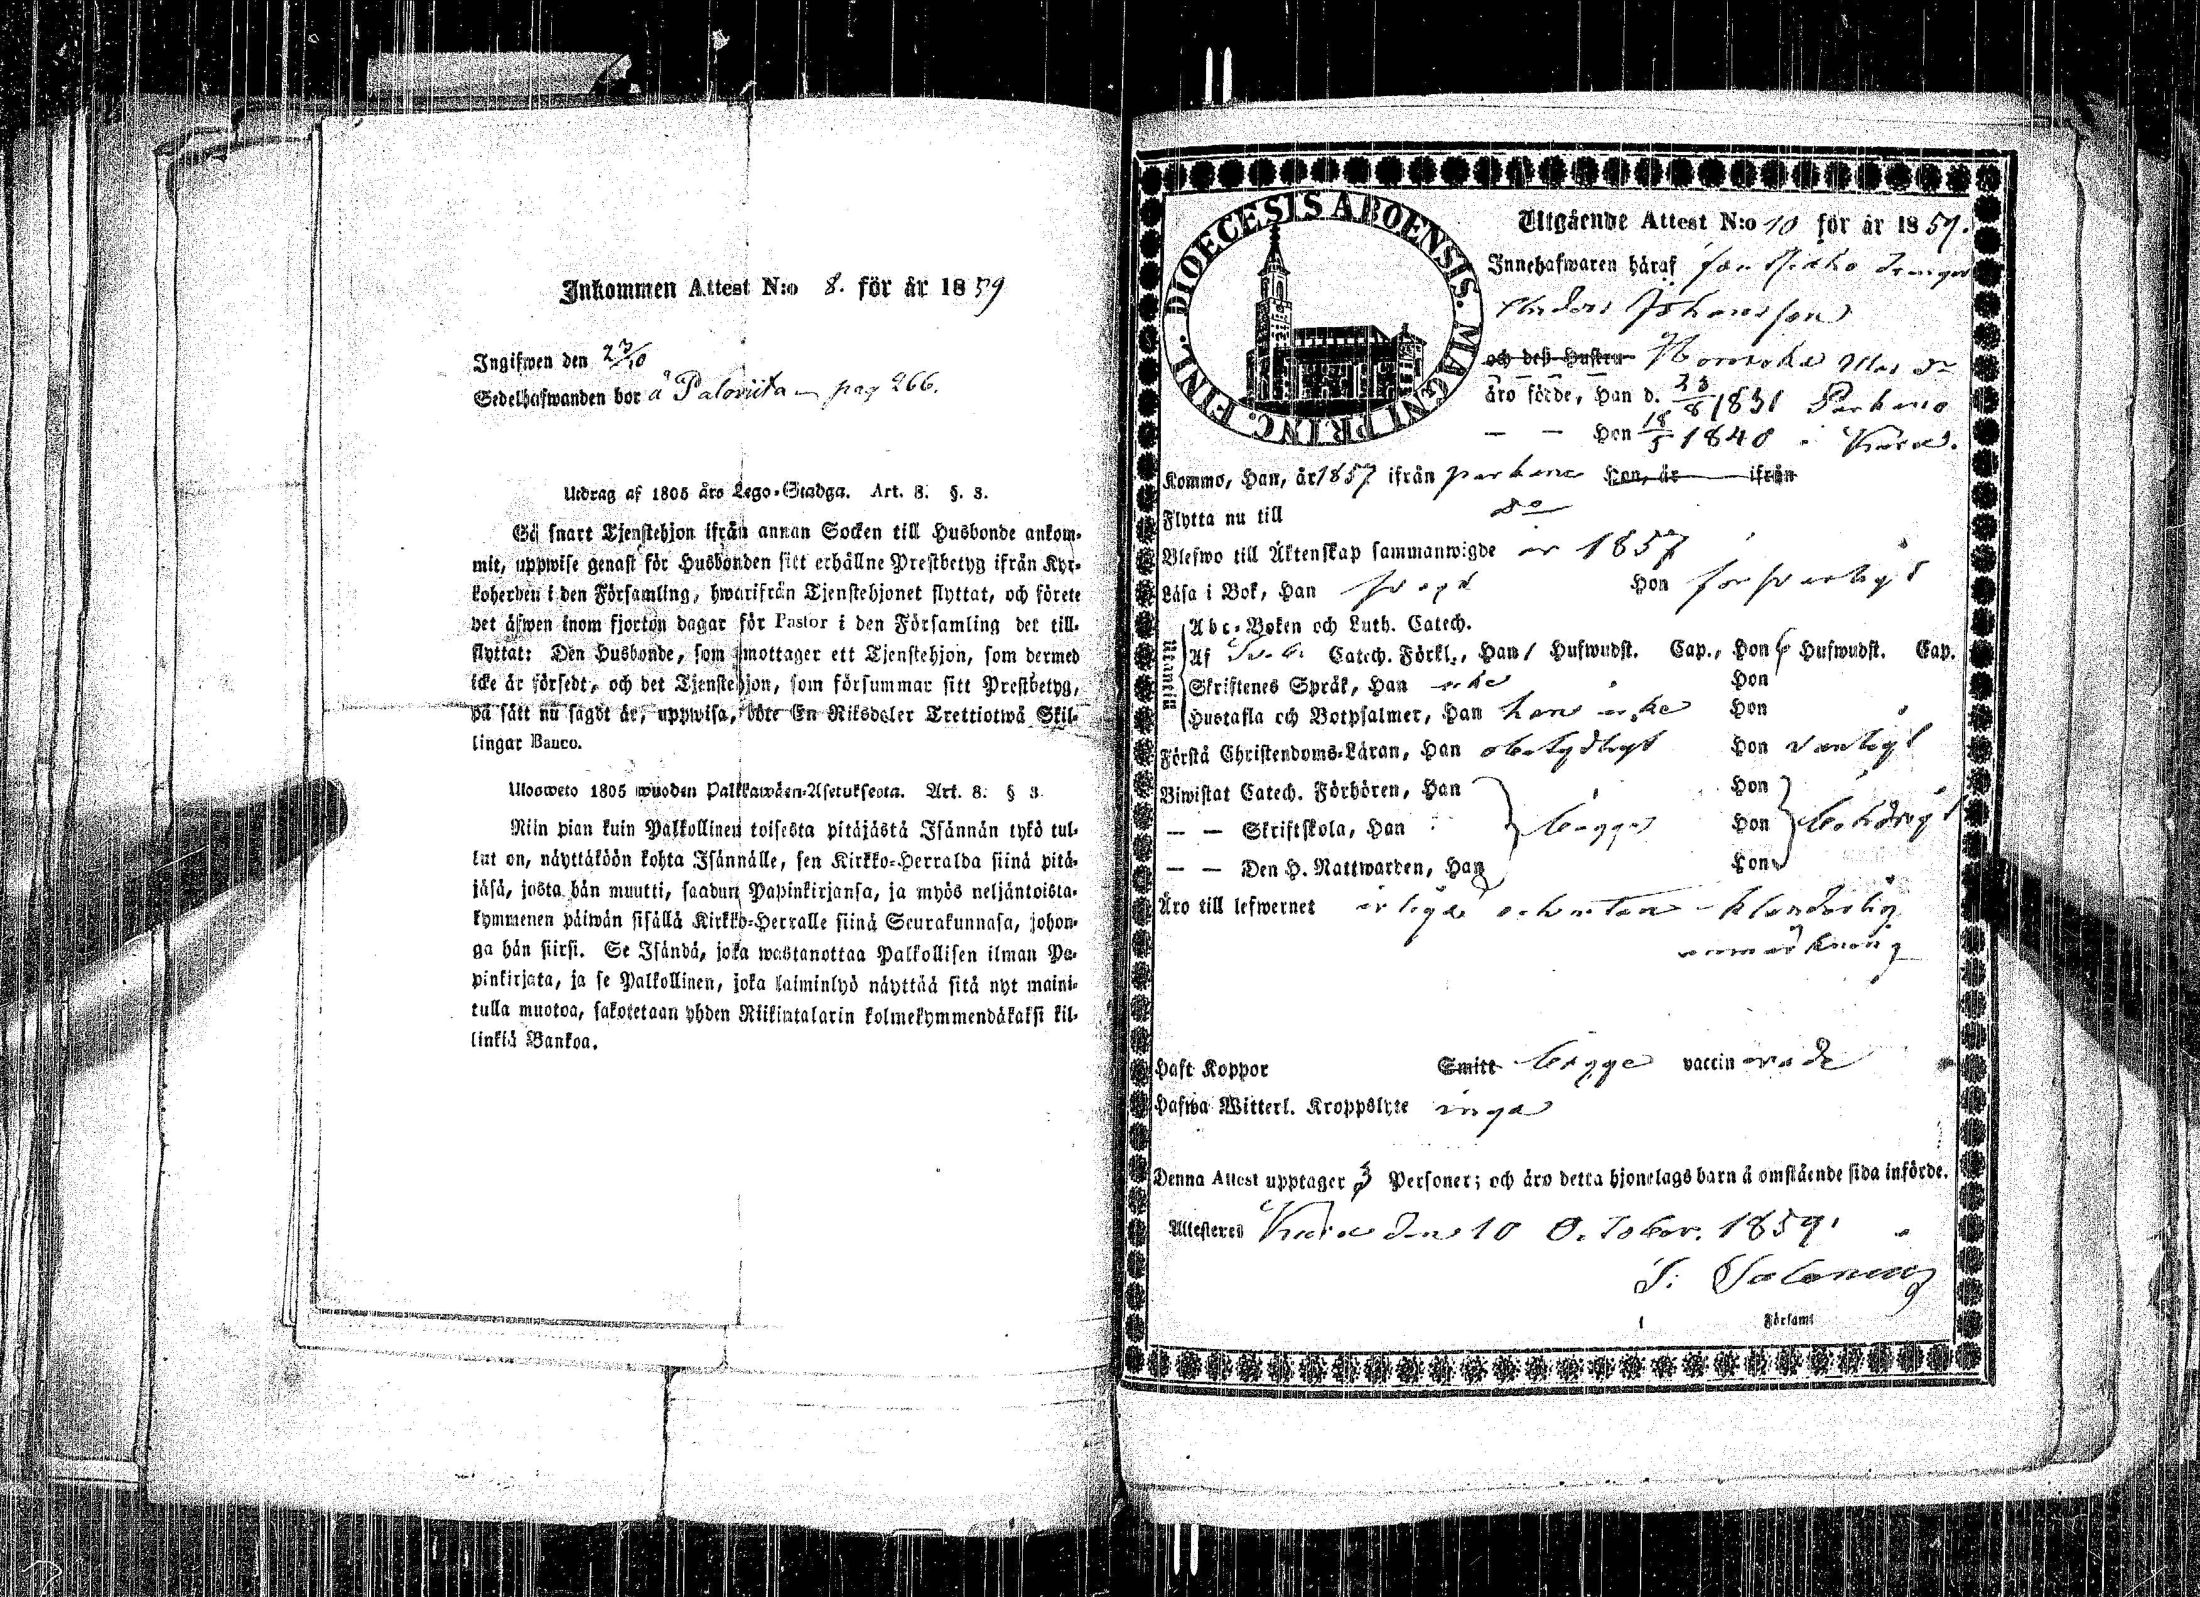 Inkommen Attest N:o 8. för år 1859
Ingifwen den 23/10
Sedelhafwanden bor å Paloviita pag 266.
Utdrag af 1805 års Lego-Stadga. Art. 8. §. 3.
Så snart Tjenstehjon ifrån annan Socken till Husbonde ankom-
mit, uppwise genast för Husbonden sitt erhållne Prestbetyg ifrån Kyr-
koherden i den Församling, hwarifrån Tjenstehjonet flyttat, och förete
det äfwen inom fjorton dagar för Pastor i den Församling det till-
flyttat: Den Husbonde, som emottager ett Tjenstehjon, som dermed
icke är försedt, och det Tjenstehjon, som försummar sitt Prestbetyg,
på sätt nu sagdt är, uppwisa, böte En Riksdaler Trettiotwå Skil-
lingar Banco.
Uloosweto 1805 wuoden Palkkawäen-Asetuksesta. Art. 8. § 3
Niin pian kuin Palkollinen toisesta pitäjästä Isännän tykö tul-
lut on, näyttäköön kohta Isännälle, sen Kirkko-Herralda siinä pitä-
jäsä, josta hän muutti, saadun Papinkirjansa, ja myös neljäntoista-
kymmenen päiwän sisällä Kirkko-Herralle siinä Seurakunnasa, johon-
ga hän siirsi. Se Isändä, joka wastanottaa Palkollisen ilman Pa-
pinkirjata, ja se Palkollinen, joka laiminlyö näyttää sitä nyt maini-
tulla muotoa, sakotetaan yhden Riikintalarin kolmekymmendäkaksi kil-
linkiä Bankoa.
DIOECESIS ABOENSIS. MAGNI PRINC. FINL.
Utgående Attest N:o 10 för år 1859.
Innehafwaren häraf
Anders Johansson
och deß Hustru
äro födde, Han d. 23/8 1831 Parkano
— — Hon 18/5 1840 i
Kommo, Han, år 1857 ifrån parkano Hon, år ifrån
Flytta nu till do
Blefwo till Äktenskap sammanwigde år 1857
Läsa i Bok, Han swagt Hon förswarligt
Utantill
Abc-Boken och Luth. Catech.
Af Catech. Förkl., Han 1 Hufwudst. Cap., Hon 6 Hufwudst. Cap.
Skriftenes Språk, Han icke Hon
Hustafla och Botpsalmer, Han icke Hon
Förstå Christendoms-Läran, Han obetydligt Hon
Biwistat Catech. Förhören, Han Hon
— — Skriftskola, Han Hon
— — Den H. Nattwarden, Han Hon
Äro till lefwernet ärliga och utan klanderlig
anmärkning
Haft Koppor Smitt bägge vaccinerade
Hafwa Witterl. Kroppslyte inga
Denna Attest upptager 3 Personer; och äro detta hjonelags barn å omstående sida införde.
Attesteras den 10 October 1859.
Församl